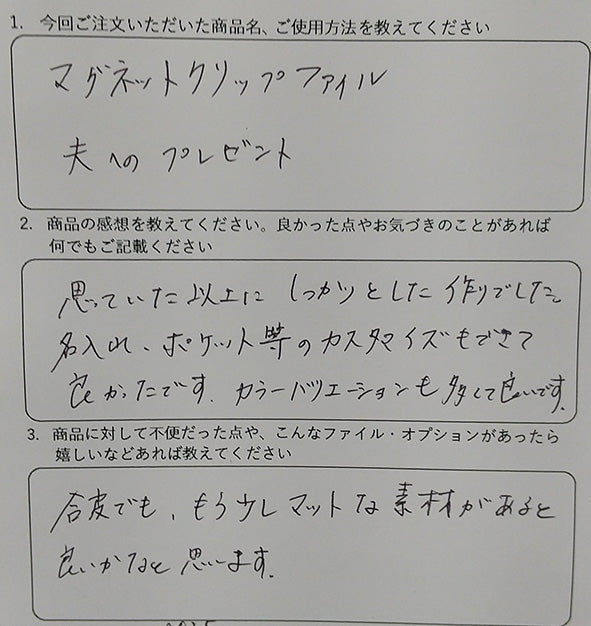 1. 今回ご注文いただいた商品名、ご使用方法を教えてください
マグネットクリップファイル
夫への プレゼント
2. 商品の感想を教えてください。良かった点やお気づきのことがあれば
何でもご記載ください
思っていた以上に しっかりとした 作りでした。
名入れ、ポケット等のカスタマイズもできて
良かったです。カラーバリエーションも多くて良いです。
3. 商品に対して不便だった点や、こんなファイル・オプションがあったら
嬉しいなどあれば教えてください
合皮でも、もう少しマットな素材があると
良いかなと思います。